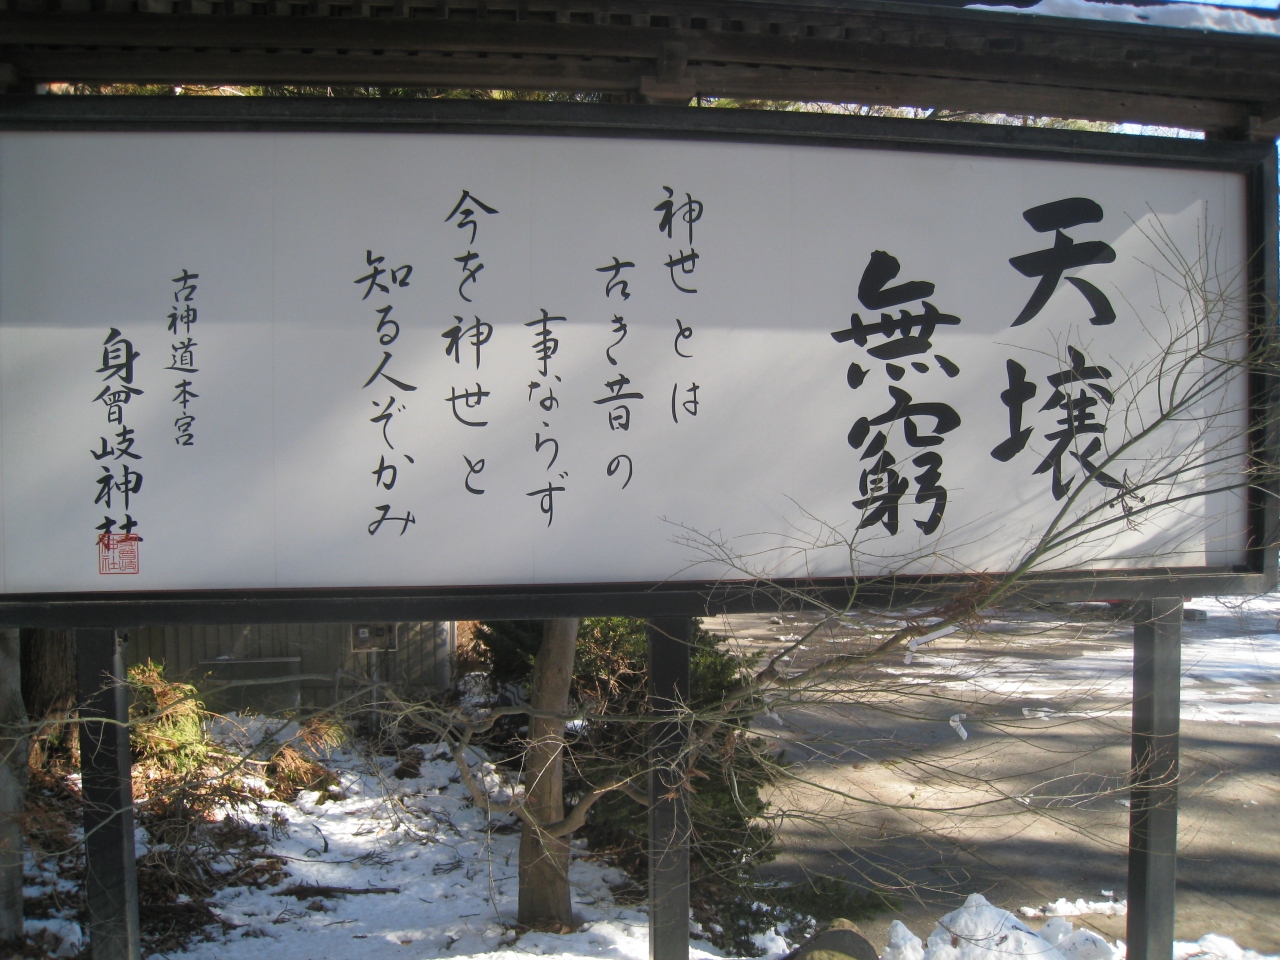 天壌
無窮
神世とは
古き昔の
事ならず
今を神世と
知る人ぞかみ
古神道本宮
身曾岐神社